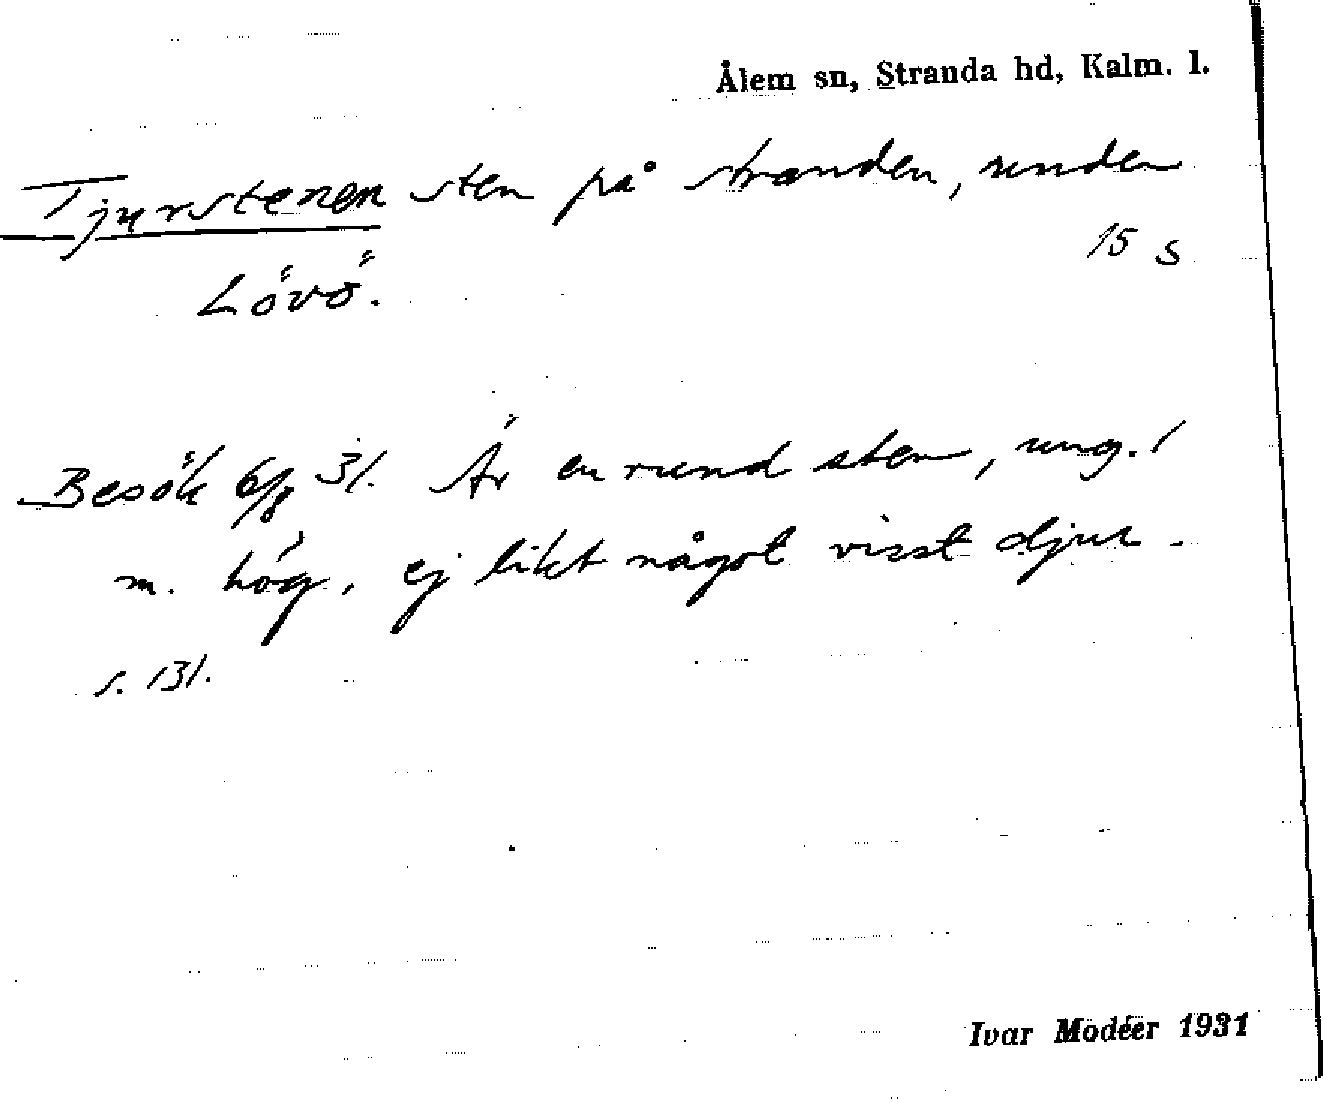 Ålem sn, Stranda hd, Kalm. l.
Tjurstenen sten på stranden, under
15 s
Lövö.
Besök 6/8 31. Är en rund sten, ung. 1
m. hög, ej likt något visst djur.
s. 131.
Ivar Modéer 1931